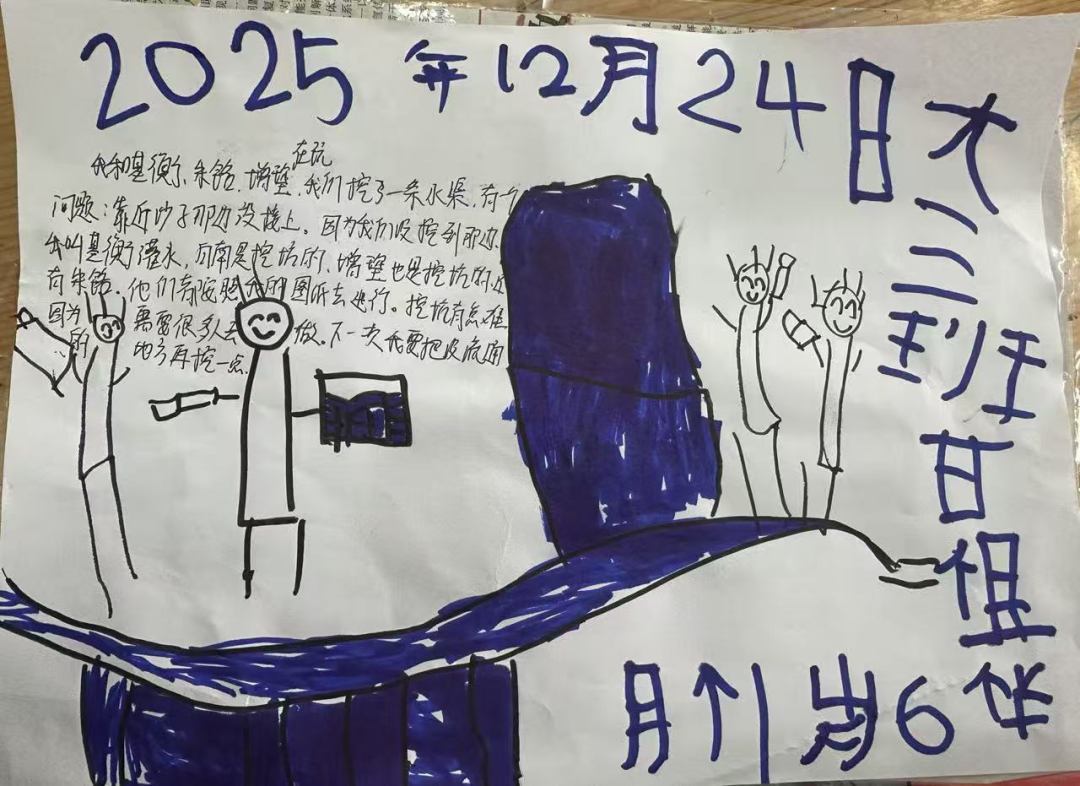 2025年12月24日
大二班甘恒华
我和基衡、朱铭、增壁在玩，我们挖了一条水渠，有一个
问题：靠近沙子那边没接上。因为我们没挖到那边，
我叫基衡灌水，向南是挖坑的，增壁也是挖坑的，还
有朱铭。他们都按照我的图纸去进行。挖坑有点难
因为 需要很多人去 做。下一次我要把没流通
的 地方再挖一点。
6岁1个月